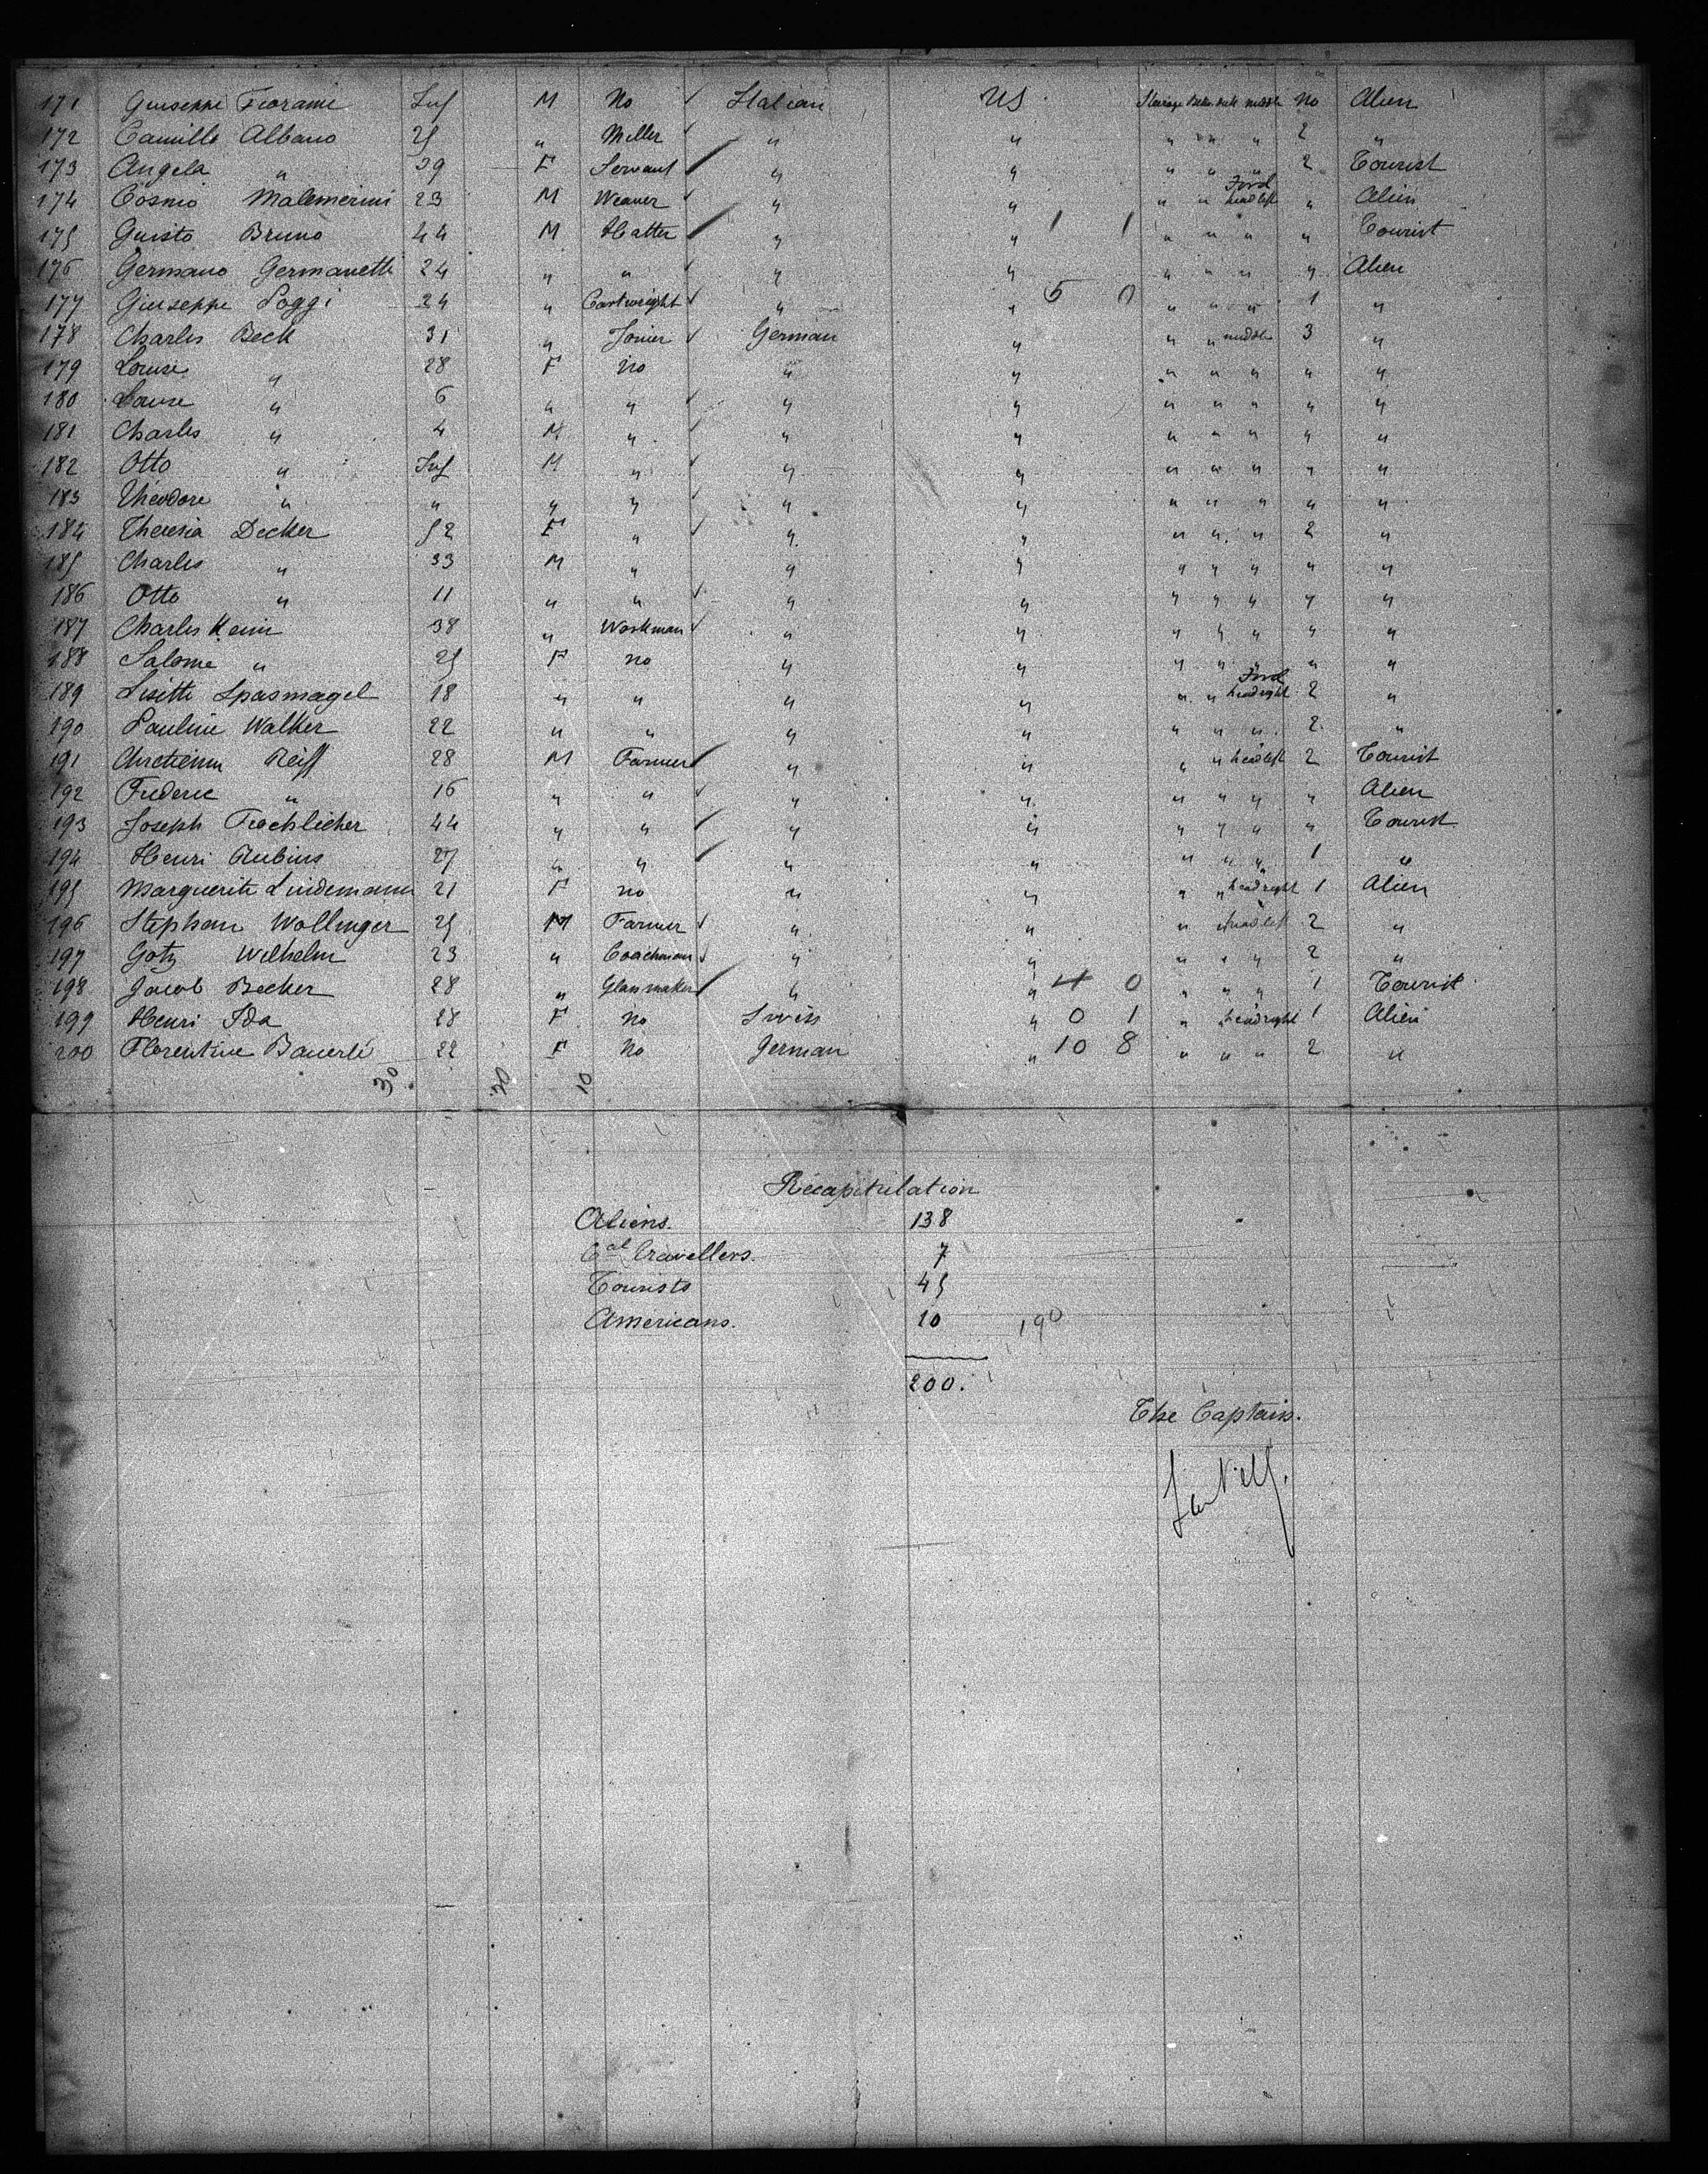 171 Giuseppe Fiorami Inf M No Italian US. Steerage Betw. deck middle No Alien
172 Camillo Albano 25 " Miller " " " " " 2 "
173 Angela " 29 F Servant " " " " " 2 Tourist
174 Cosmo Malemerini 23 M Weaver " " " " Ford head left " Alien
175 Guisto Bruno 44 M Hatter " " 1 1 " " " " Tourist
176 Germano Germanetti 24 " " " " " " " " Alien
177 Giuseppe Poggi 24 " Cartwright " " 5 0 " " " 1 "
178 Charles Beck 31 " Joiner German " " " middle 3 "
179 Louise " 28 F no " " " " " " "
180 Louise " 6 " " " " " " " " "
181 Charles " 4 M " " " " " " " "
182 Otto " Inf M " " " " " " " "
183 Théodore " " " " " " " " " " "
184 Theresia Decker 52 F " " " " " " 2 "
185 Charles " 33 M " " " " " " " "
186 Otto " 11 " " " " " " " " "
187 Charles Keim 38 " Workman " " " " " " "
188 Salome " 25 F no " " " " " " "
189 Lisette Spasmagel 18 " " " " " " Ford head right 2 "
190 Pauline Walker 22 " " " " " " " 2 "
191 Chretienn Reiff 28 M Farmer " " " " head left 2 Tourist
192 Frederic " 16 " " " " " " " " Alien
193 Joseph Froehlicher 44 " " " " " " " " Tourist
194 Henri Rubins 27 " " " " " " " 1 "
195 Marguerite Lindemann 21 F no " " " " head right 1 Alien
196 Stephan Wollinger 25 M Farmer " " " head left 2 "
197 Gotz Wilhelm 23 " Coachman " " " " " 2 "
198 Jacob Becker 28 " Glassmaker " " 4 0 " " " 1 Tourist
199 Henri Ida 28 F No Swiss " 0 1 " " head right 1 Alien
200 Florentine Bauerlé 22 F No German " 10 8 " " " 2 "
30 20 10
Récapitulation
Aliens. 138
Cal Travellers. 7
Tourists 45
Americans. 10 190
200.
The Captain.